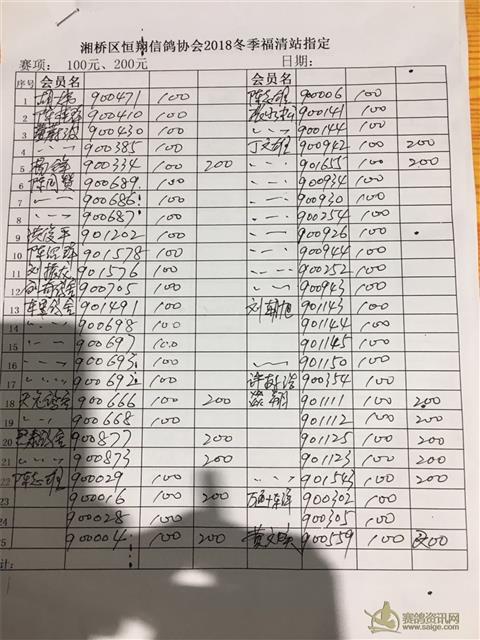 湘桥区恒翔信鸽协会2018冬季福清站指定
赛项: 100元、200元 日期:
序号 会员名 会员名
1 胡伟 900471 100 陈志雄 900006 100
2 900410 100 900141 100
3 900430 100 〃 900144 100
4 〃 900385 100 丁文雄 900942 100 200
5 杨锋 900334 100 200 〃 901655 100 200
6 900689 100 〃 900934 100
7 〃 900686 100 〃 900930 100
8 〃 900687 100 〃 900254 100
9 洪俊平 901202 100 〃 900926 100
10 901578 100 〃 900944 100
11 刘振友 901576 100 〃 900252 100
12 900705 100 〃 900943 100
13 901491 100 刘朝旭 901143 100
14 〃 900698 100 901144 100
15 〃 900697 100 901145 100
16 〃 900693 100 〃 901150 100
17 〃 900692 100 900354 100
18 900666 100 200 901111 100 200
19 〃 900668 100 901112 100 200
20 900877 200 901125 100 200
21 〃 900873 200 901123 100 200
22 陈志雄 900029 100 〃 901543 100 200
23 900016 100 200 900302 100
24 900028 100 900305 100
25 900004 100 200 900559 100 200
计:
赛鸽资讯网
www.saige.com